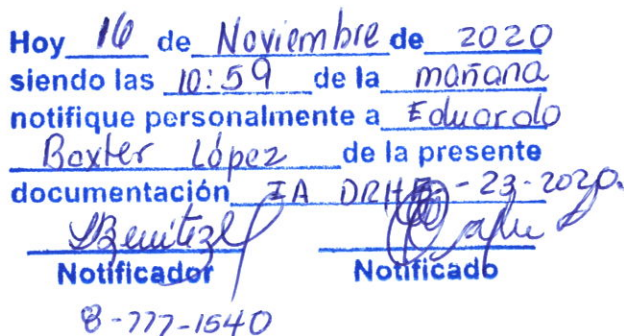 Hoy 16 de Noviembre de 2020
siendo las 10:59 de la mañana
notifique personalmente a Eduardo
Baxter López de la presente
documentación IA DRH - 23-2020.
Notificador Notificado
8-777-1540